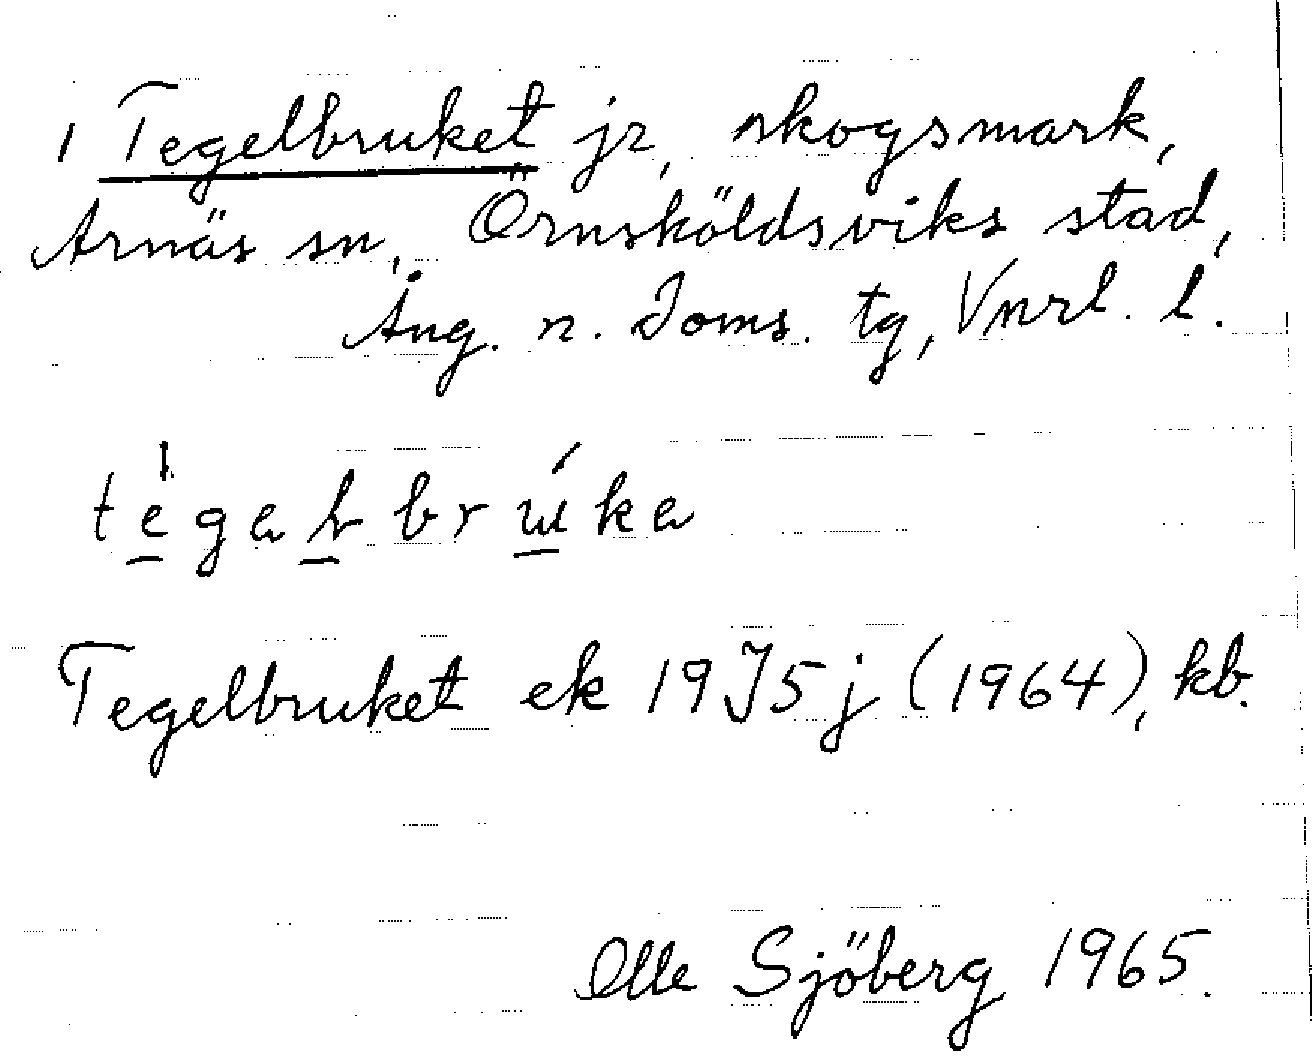 1 Tegelbruket jr, skogsmark,
Arnäs sn, Örnsköldsviks stad,
Ång. n. Doms. tg, Vnrl. l.
Tegelbruket ek 19J5j (1964), kb.
Olle Sjöberg 1965.